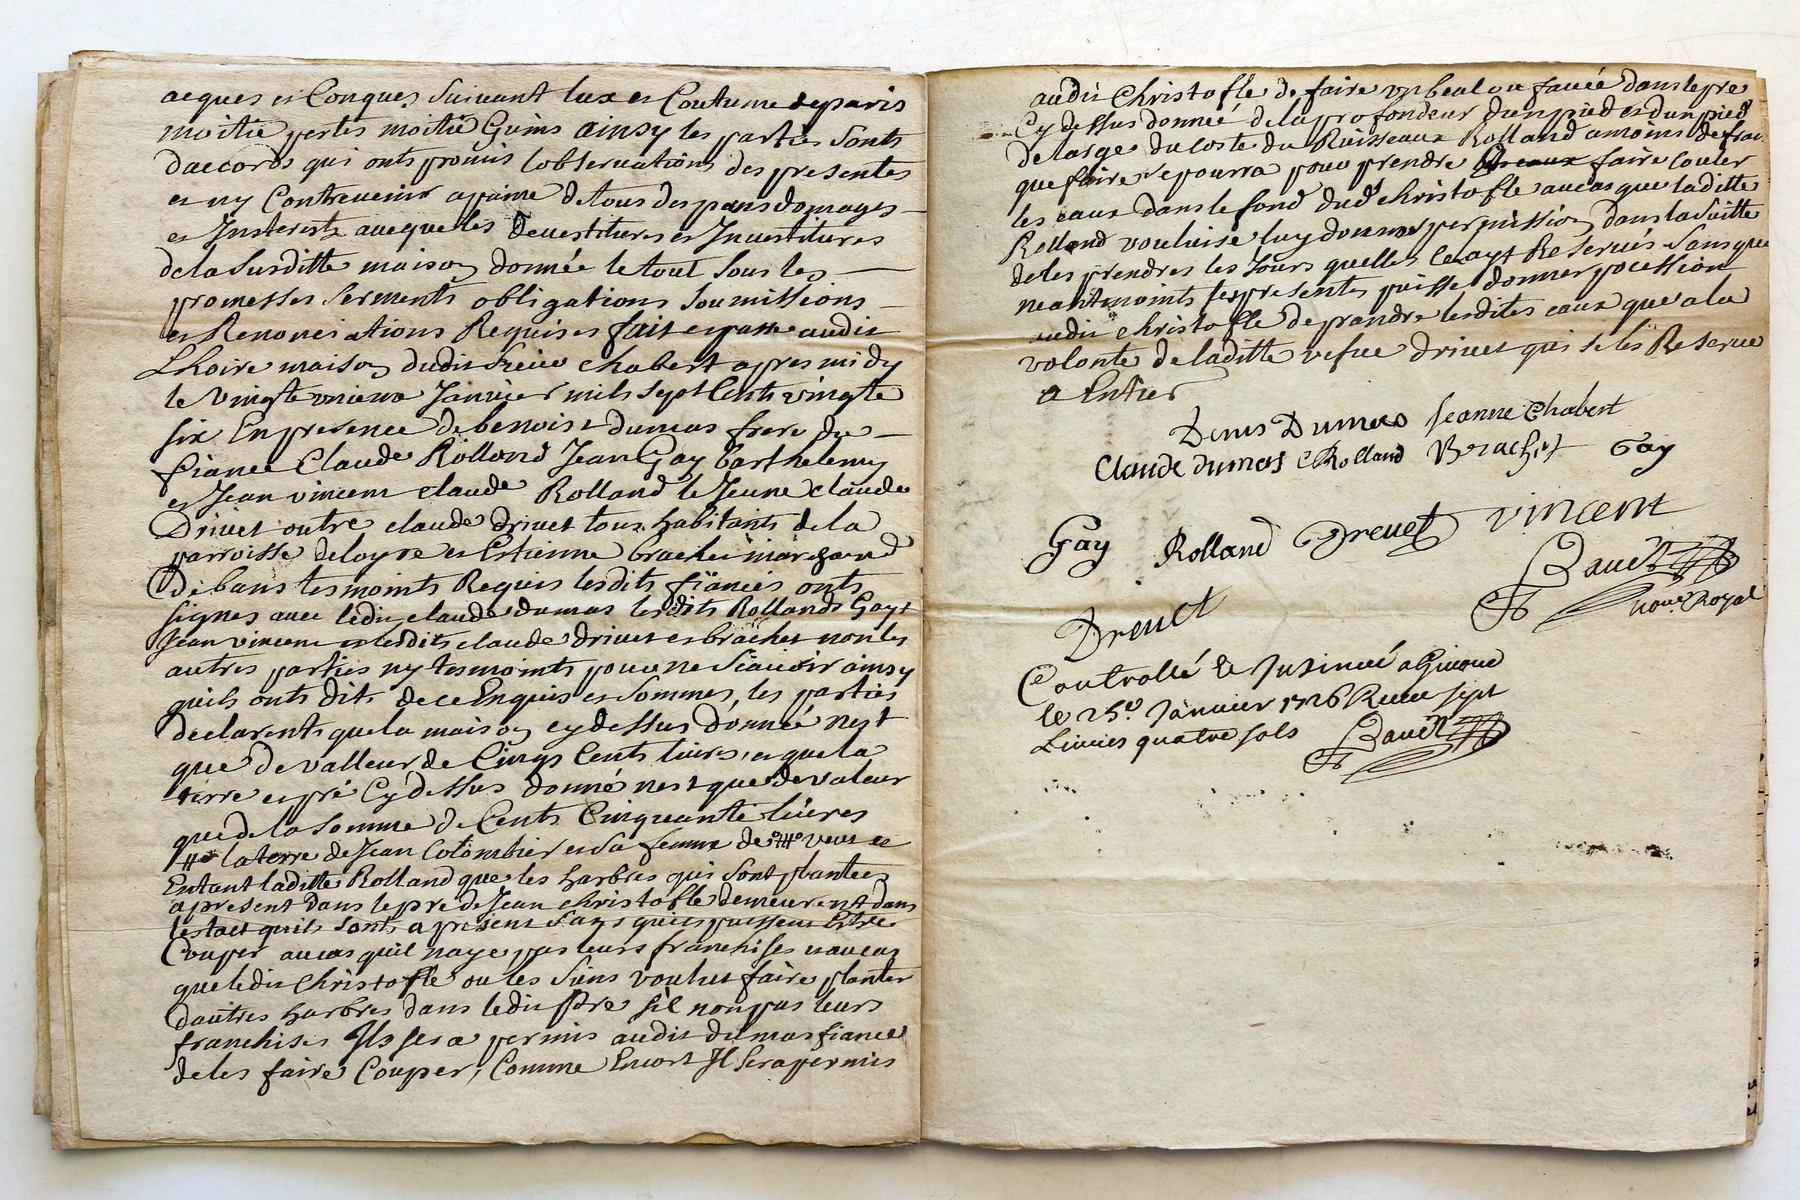 acques et Conques suivant lux et Coutume de paris
moitié pertes moitié Gains ainsy les parties sonts
daccords qui onts promis lobservations des presentes
et ny Contrevenir a paine de tous despans domages
et Insterests avecque les Devestitures et Investitures
de la susditte maison donnée le tout sous les
promesses serments obligations soumissions
et Renonciations Requises fait et passé audit
Lhoire maison dudit sieur Chabert apres midy
le vingte unieme Janvier mils sept Cents vingte
six En presence de benoist dumas frere du
fiance Claude Rolland Jean Gay barthelemy
et Jean vincent claude Rolland le Jeune claude
Drivet outre claude drivet tous habitants de la
parroisse de loyre et Estienne brachet marchand
De bans tesmoints Requis lesdits fiancés onts
signes avec ledit claude dumas lesdits Rollands Gays
Jean vincent et lesdits claude drivet et brachet non les
autres parties ny tesmoints pour ne scavoir ainsy
quils onts dits de ce Enquis et Sommes, les parties
declarents que la maison cy dessus donnée nest
que De valleur de Cinqs Cents livres, et que la
terre et pré Cy dessus donné nest que de valeur
que de la somme de Cents Cinquante livres
la terre de Jean Colombier et sa femme de
Entant laditte Rolland que les harbres qui sont plantees
a present dans le pre de Jean christofle demeurent dans
lestact quils sonts a present sans quils puissent Estre
Couper au cas quil naye pas leurs franchises et au cas
que ledit christofle ou les siens voulut faire planter
dautres harbres dans ledit pre sil non pas leurs
franchises Il sera permis audit dumas fiancé
de les faire Couper, Comme Encort Il sera permis
audit christofle de faire un beal ou fauée dans le pre
Cy dessus donnée de la profondeur dun pied et dun pied
de large du coste du Ruisseaux Rolland a moins de frai
que faire se pourra pour prendre faire couler
les eaux dans le fond dud christofle au cas que laditte
Rolland voulusse luy donner permission dans la suitte
de les prendres les Jours quelles Reservés sans que
neantmoints les presentes puisse donner pocession
audit christofle de prandre lesdites eaux que a la
volonté de laditte vefue drivet qui se les Reserve
a Entier
Denis Dumas Jeanne Chabert
Claude dumas C Rolland Brachet Gay
Gay Rolland Drevet vincent
Drevet
Bauet
note Royal
Controllé & Insinué a Givord
le 25e Janvier 1726 Receu sept
Livres quatre sols Bauet